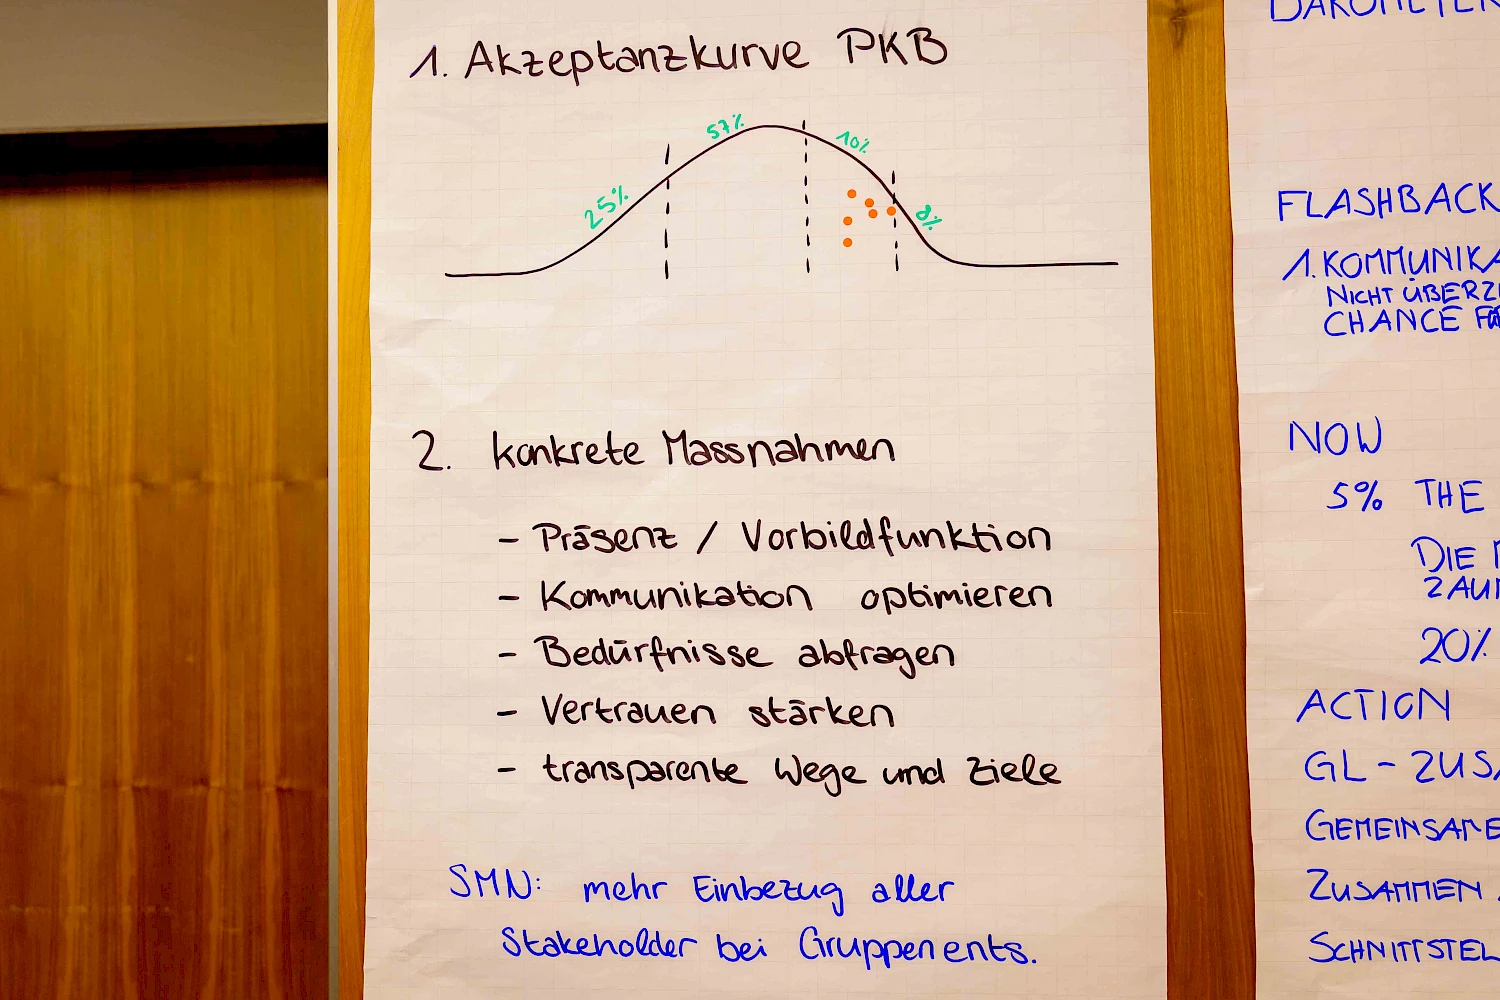 1. Akzeptanzkurve PKB
25%
57%
10%
8%
2. konkrete Massnahmen
- Präsenz / Vorbildfunktion
- Kommunikation optimieren
- Bedürfnisse abfragen
- Vertrauen stärken
- transparente Wege und Ziele
SMN: mehr Einbezug aller
Stakeholder bei Gruppenents.
FLASHBACK
1. KOMMUNIKA
NICHT ÜBERZ
CHANCE
NOW
5% THE
DIE
ZAU
20%
ACTION
GL - ZUS
GEMEINSAME
ZUSAMMEN
SCHNITTSTEL